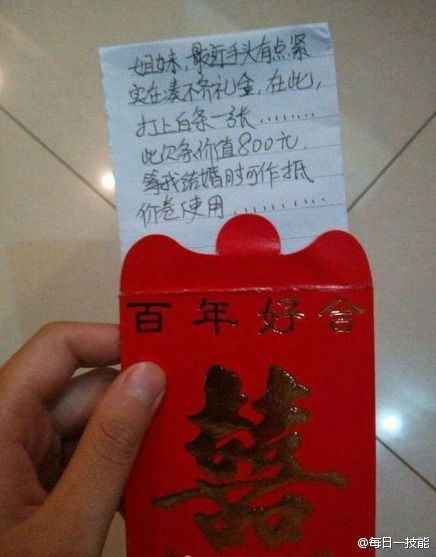 姐妹,最近手头有点紧
实在凑不齐礼金,在此,
打上白条一张........
此欠条价值800元.
等我结婚时可作抵
价卷使用..........
百年好合
囍
@每日一技能